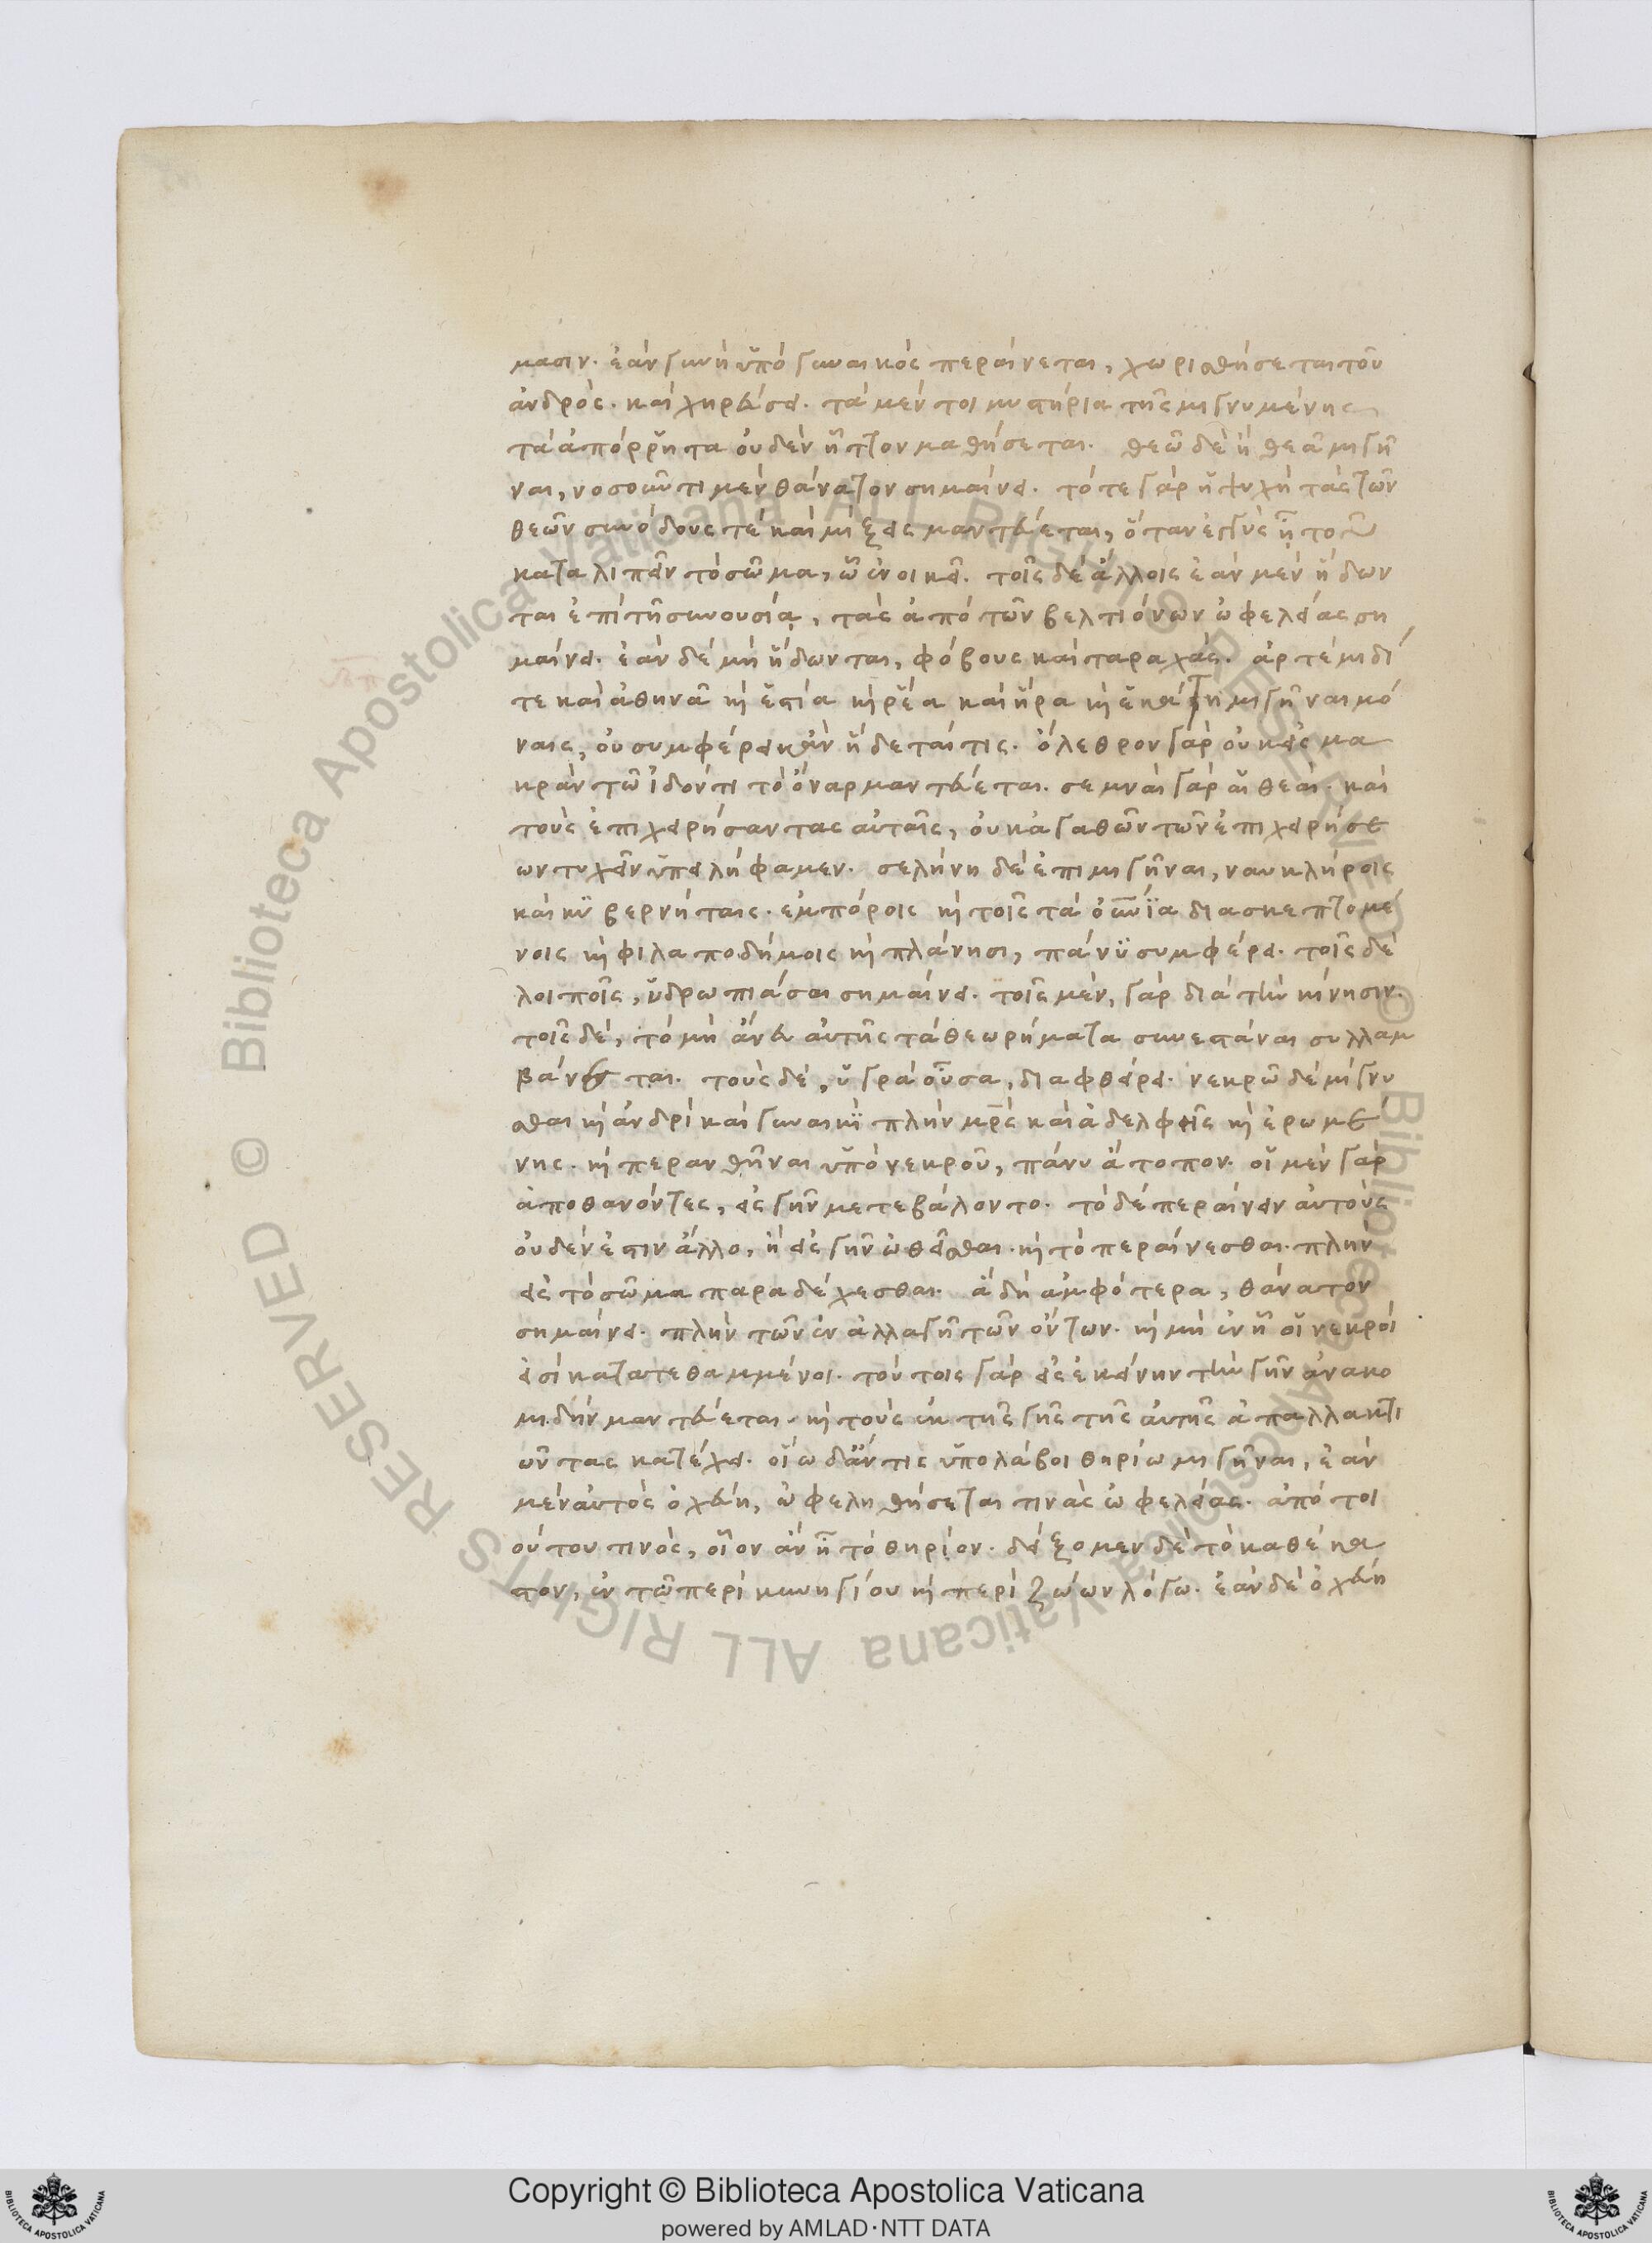 μασιν. ἐὰν γυνὴ ὑπὸ γυναικὸς περαίνεται, χωρισθήσεται τοῦ
ἀνδρὸς. καὶ χηρεύσει. τὰ μέν τοι μυστήρια τῆς μιγνυμένης
τὰ ἀπόρρητα οὐδὲν ἧττον μαθήσεται. θεῶ δὲ ἢ θεᾶ μιγῆ
ναι, νοσοῦντι μὲν θάνατον σημαίνει. τότε γὰρ ἡ ψυχὴ τὰς τῶν
θεῶν συνόδους τὲ καὶ μίξεις μαντεύεται, ὅταν ἐγγὺς ἦ τοῦ
καταλιπεῖν τὸ σῶμα, ὧ ἐνοικεῖ. τοῖς δὲ ἄλλοις ἐὰν μὲν ἥδων
ται ἐπὶ τῆ συνουσία, τὰς ἀπὸ τῶν βελτιόνων ὠφελείας ση
μαίνει. ἐὰν δὲ μὴ ἥδωνται, φόβους καὶ ταραχάς. ἀρτέμιδί
τε καὶ ἀθηνᾶ κὶ ἑστία κὶ ῥέα καὶ ἥρα κὶ ἑκάτη μιγῆναι μό
ναις, οὐ συμφέρει κἂν ἥδεταί τις. ὄλεθρον γὰρ οὐκ εἰς μα
κρὰν τῶ ἰδόντι τὸ ὄναρ μαντεύεται. σεμναὶ γὰρ αἱ θεαί. καὶ
τοὺς ἐπιχειρήσαντας αὐταῖς, οὐκ ἀγαθῶν τῶν ἐπιχειρήσε
ων τυχεῖν ὑπειλήφαμεν. σελήνη δὲ ἐπιμιγῆναι, ναυκλήροις
καὶ κυβερνήταις. ἐμπόροις κὶ τοῖς τὰ οὐράνϊα διασκεπτομέ
νοις κὶ φιλαποδήμοις κὶ πλάνησι, πάνϋ συμφέρει. τοῖς δὲ
λοιποῖς, ὑδρωπιάσαι σημαίνει. τοῖς μὲν, γὰρ διὰ τὴν κίνησιν.
τοῖς δὲ, τὸ μὴ ἄνευ αὐτῆς τὰ θεωρήματα συνεστάναι συλλαμ
βάνεται. τοὺς δὲ, ὑγρὰ οὖσα, διαφθείρει. νεκρῶ δὲ μίγνυ
σθαι κὶ ἀνδρὶ καὶ γυναικϊ πλὴν μρς καὶ ἀδελφῆς κὶ ἐρωμέ
νης. κὶ περανθῆναι ὑπὸ νεκροῦ, πάνυ ἄτοπον. οἱ μὲν γὰρ
ἀποθανόντες, εἰς γῆν μετεβάλοντο. τὸ δὲ περαίνειν αὐτοὺς
οὐδέν ἐστιν ἄλλο, ἢ εἰς γῆν ὠθεῖσθαι. κὶ τὸ περαίνεσθαι. πλὴν
εἰς τὸ σῶμα παραδέχεσθαι. ἃ δὴ ἀμφότερα, θάνατον
σημαίνει. πλὴν τῶν ἐν ἀλλαγῆ τῶν ὄντων. κὶ μὴ ἐν ἧ οἱ νεκροί
εἰσὶ κατατεθαμμένοι. τούτοις γὰρ εἰς ἐκείνην τὴν γῆν ἀνακο
μιδὴν μαντεύεται. κὶ τοὺς ἐκ τῆς γῆς τῆς αὐτῆς ἀπαλλακτι
ῶντας κατέχει. οἵω δἄν τις ὑπολάβοι θηρίω μιγῆναι, ἐὰν
μὲν αὐτὸς ὀχεύη, ὠφεληθήσεται τινὰς ὠφελείας. ἀπὸ τοι
ούτου τινὸς, οἷον ἂν ἦ τὸ θηρίον. δείξομεν δὲ τὸ καθέκα
στον, ἐν τῶ περὶ κυνηγίου κὶ περὶ ζώων λόγω. ἐὰν δὲ ὀχεύη